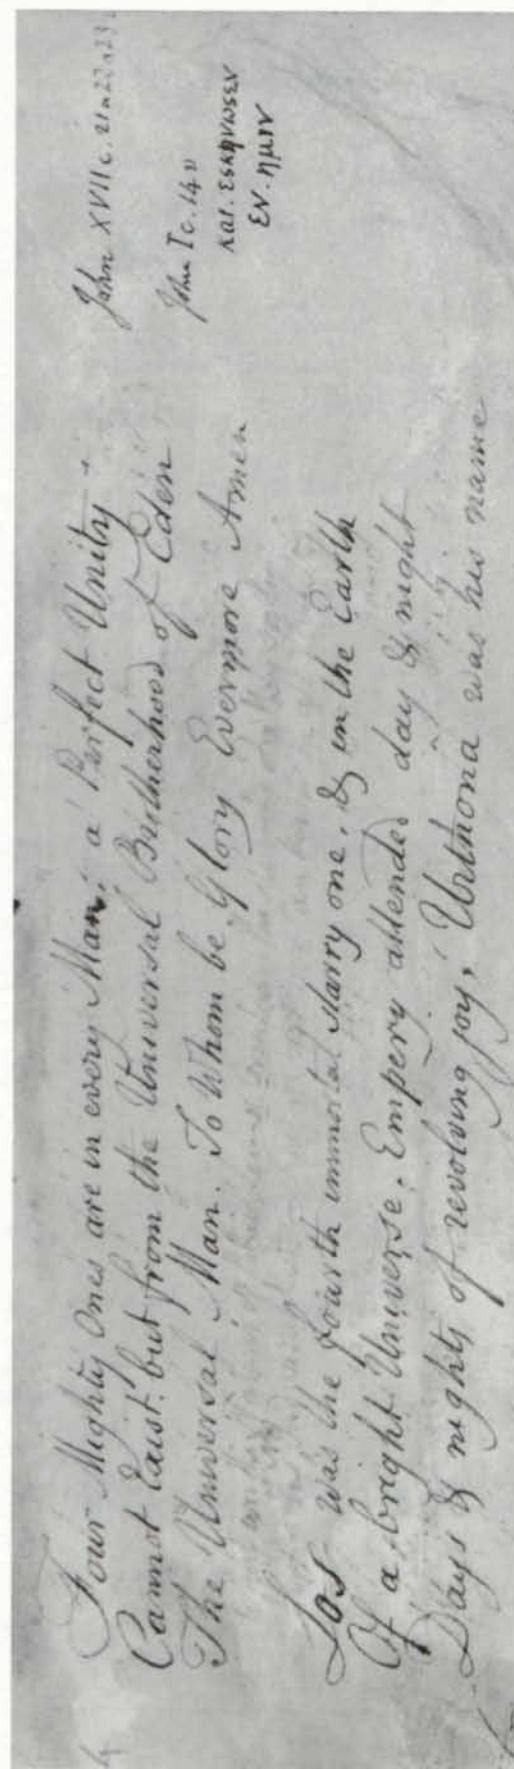 Four Mighty Ones are in every Man; a Perfect Unity
John XVII c. 21 & 22 & 23 v
Cannot Exist. but from the Universal Brotherhood of Eden
John I c. 14 v
The Universal Man. To Whom be Glory Evermore Amen
και. εςκηνωςεν
εν. ημιν
Los was the fourth immortal starry one, & in the Earth
Of a bright Universe, Empery attended day & night
Days & nights of revolving joy, Urthona was his name